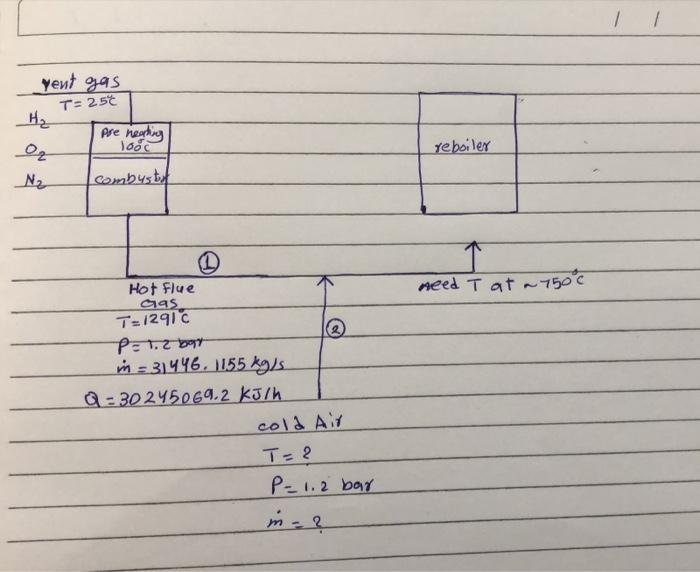 / /
vent gas
T = 25°C
H2
O2
N2
Pre heating
100°C
combustor
reboiler
①
Hot Flue
gas
T = 1291°C
P = 1.2 bar
ṁ = 31446.1155 kg/s
Q = 30245069.2 KJ/h
need T at ~750°C
②
cold Air
T = ?
P = 1.2 bar
ṁ = ?